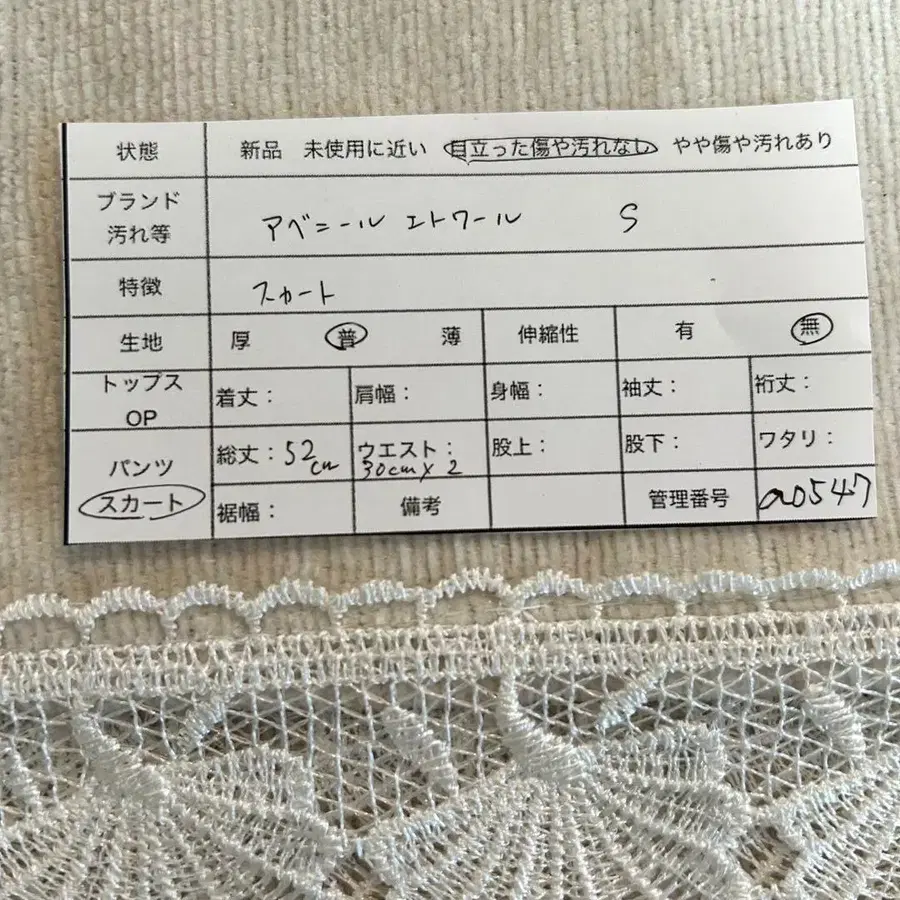 状態 新品 未使用に近い 目立った傷や汚れなし やや傷や汚れあり
ブランド
汚れ等 アベニール エトワール S
特徴 スカート
生地 厚 普 薄 伸縮性 有 無
トップス
OP 着丈: 肩幅: 身幅: 袖丈: 裄丈:
パンツ 総丈:52cm ウエスト:30cm×2 股上: 股下: ワタリ:
スカート 裾幅: 備考 管理番号 a0547